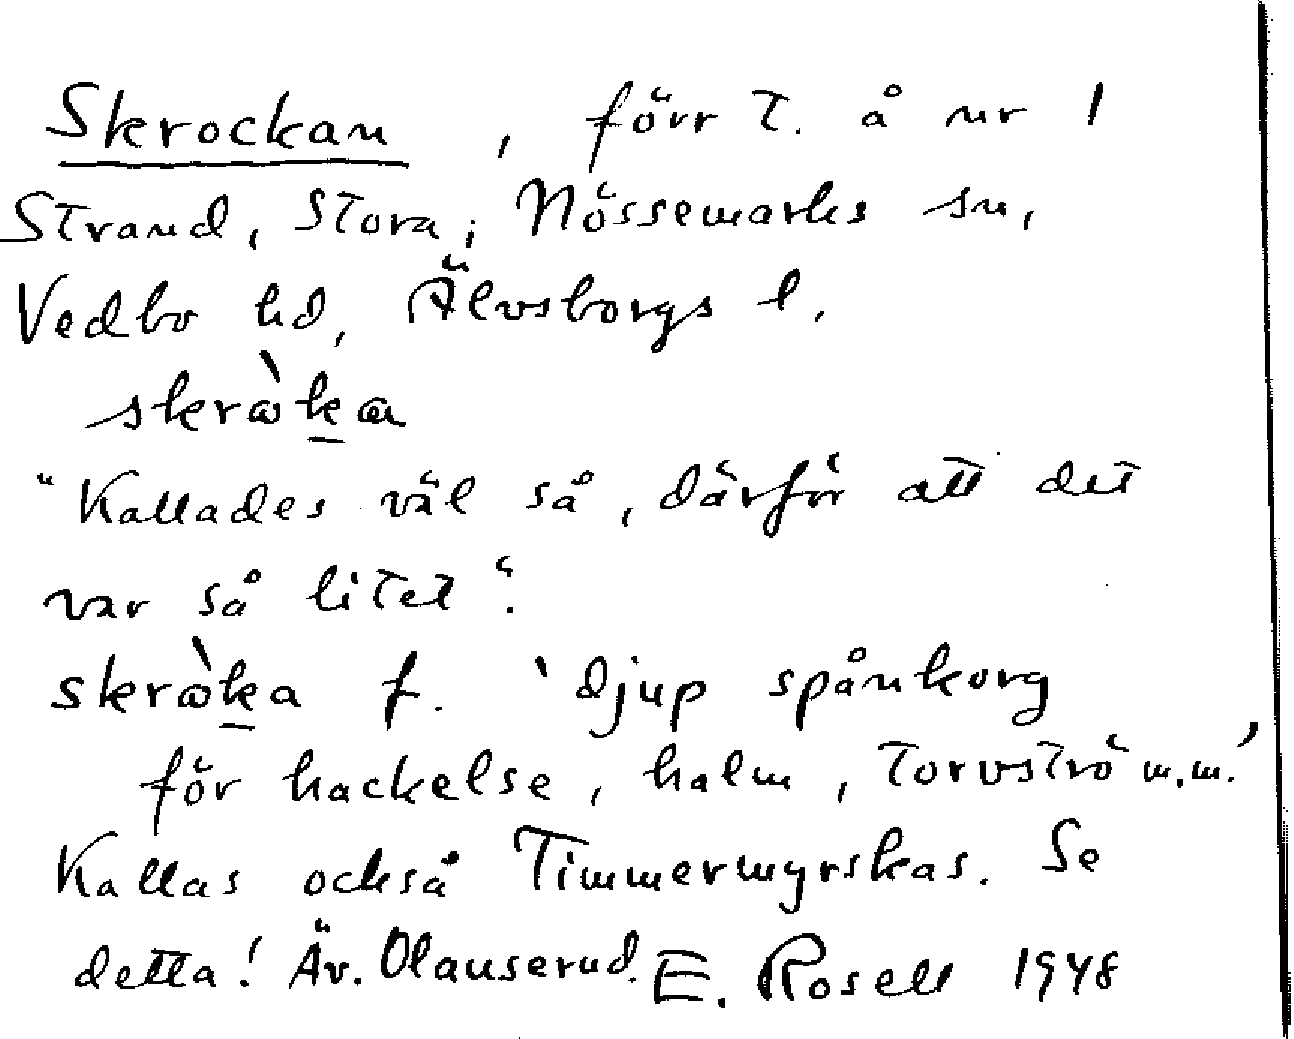 Skrockan, förr t. å nr 1
Strand, Stora; Nössemarks sn,
Vedbo hd, Älvsborgs l.
skrὼka
"Kallades väl så, därför att det
var så litet".
skrὼka f. 'djup spånkorg
för hackelse, halm, torvströ m.m.'
Kallas också Timmermyrskas. Se
detta! Äv. Olauserud. E. Rosell 1948